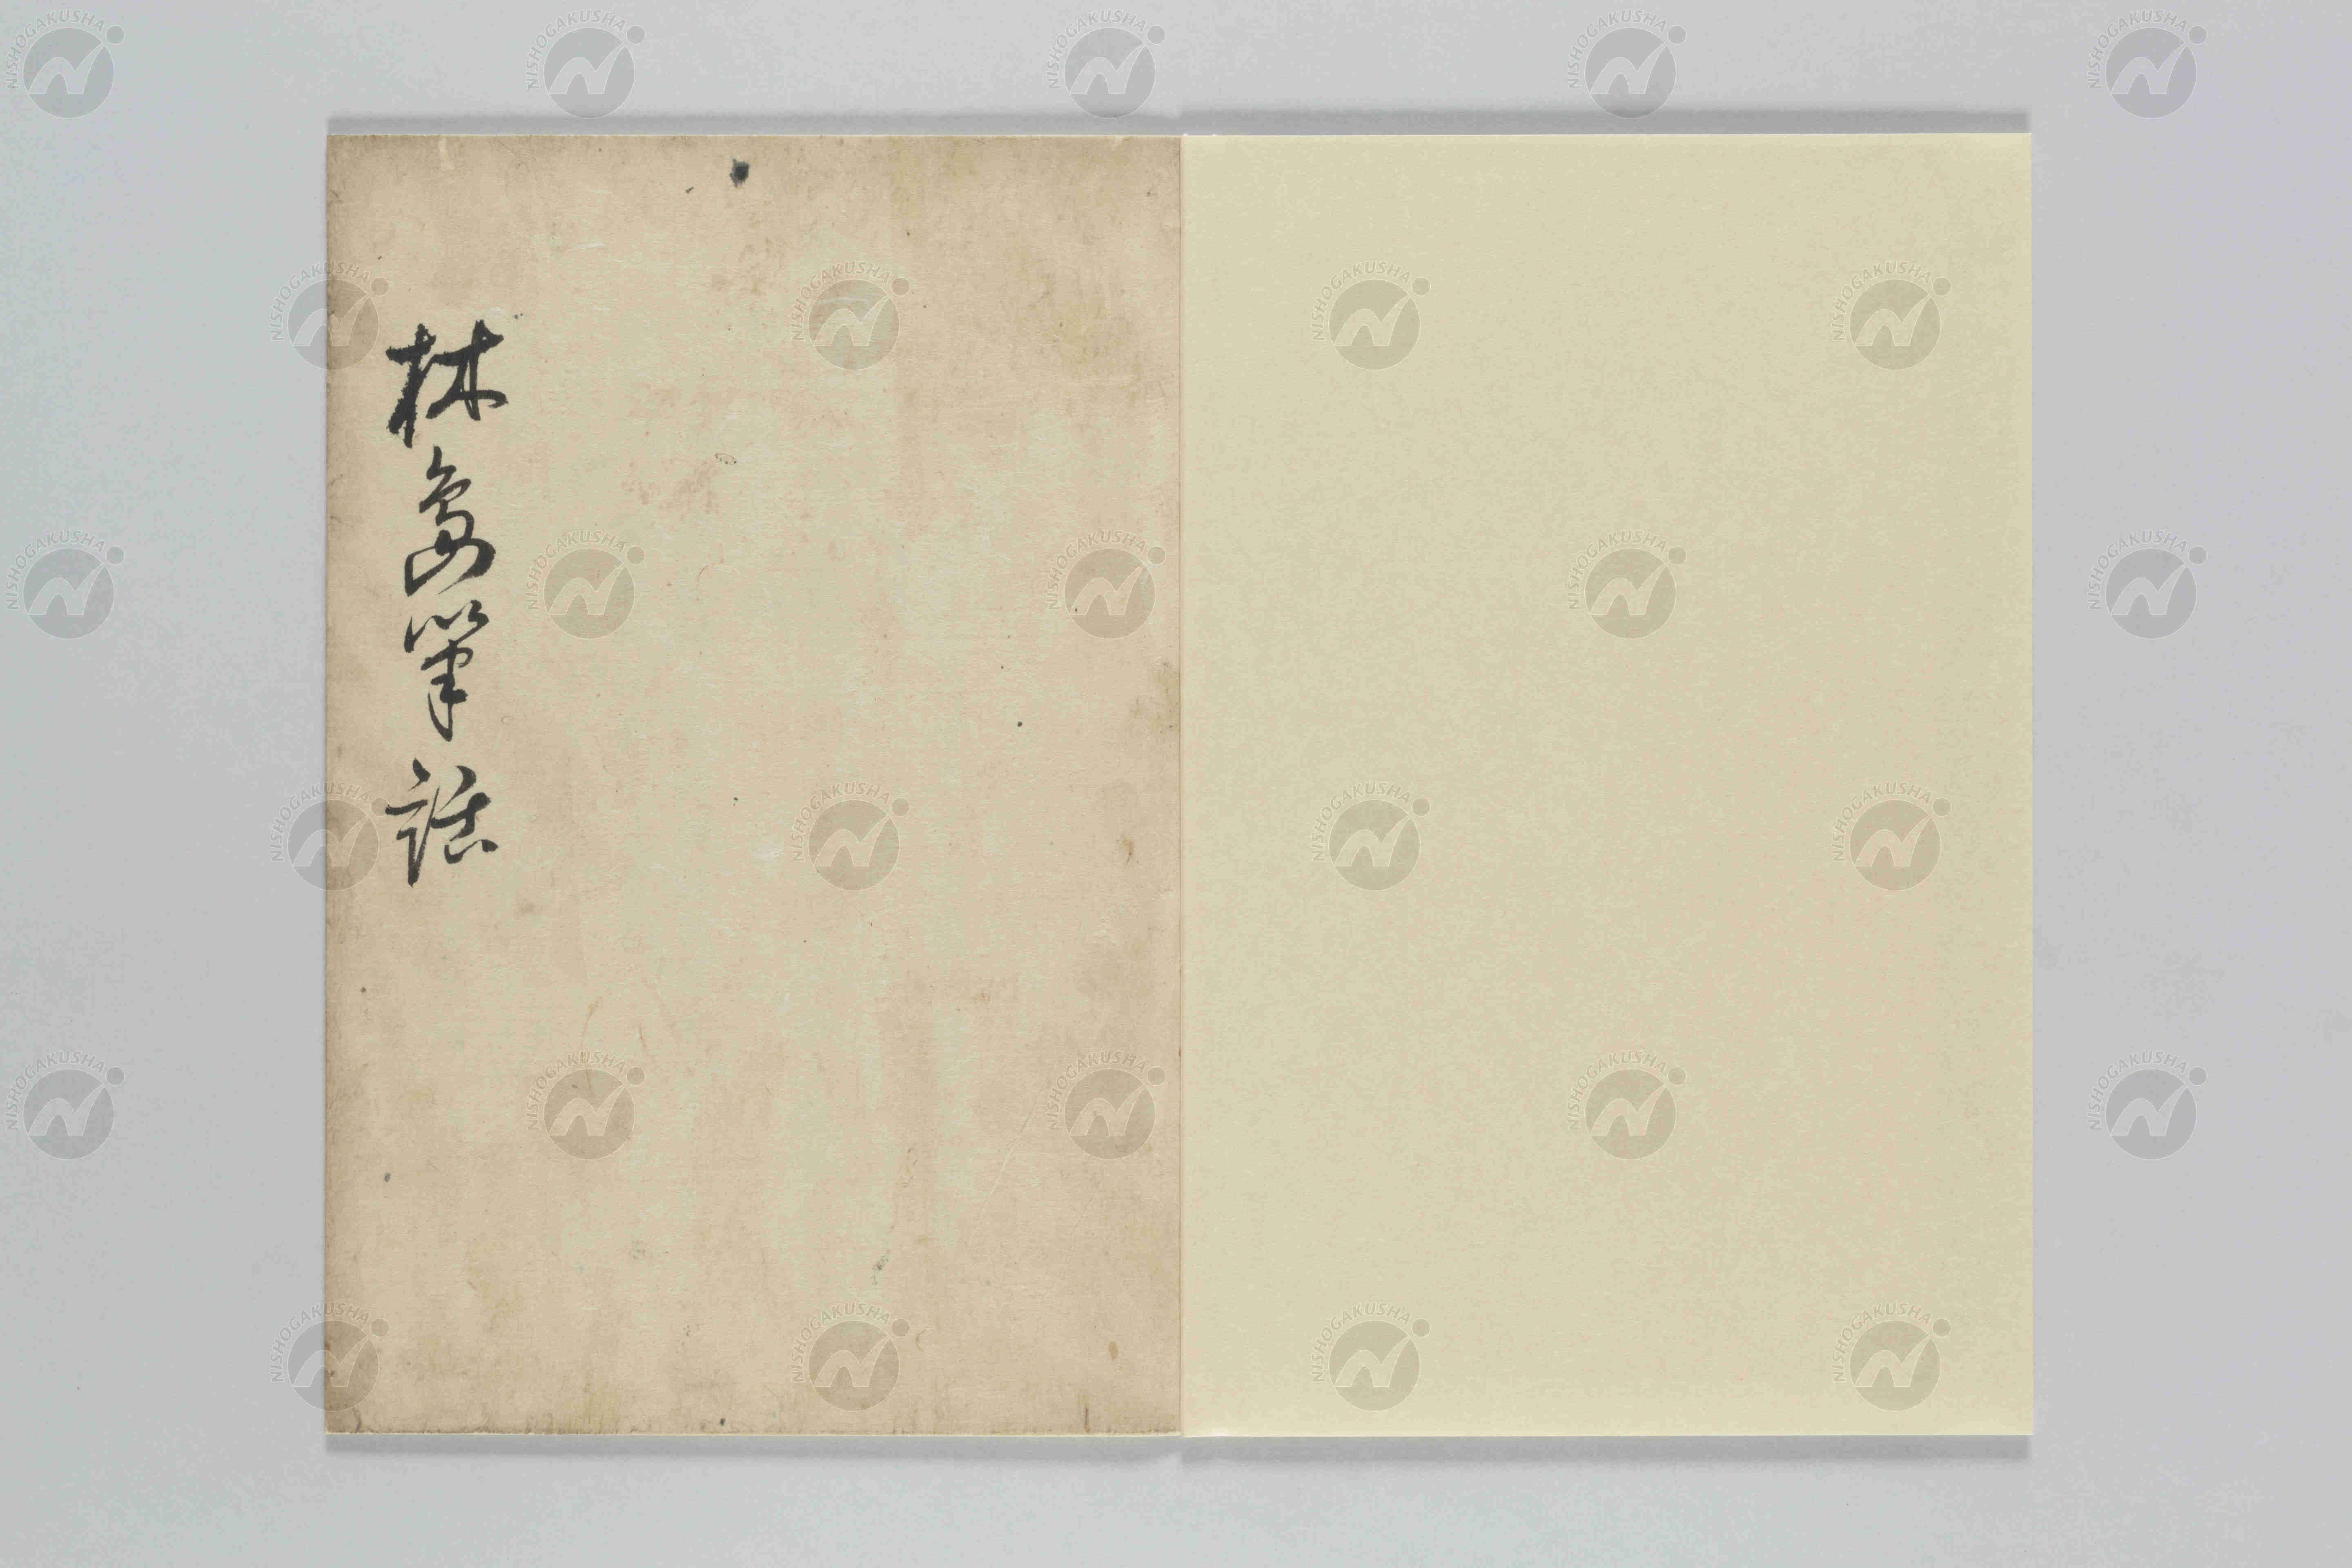 林嶌筆話
NISHOGAKUSHA